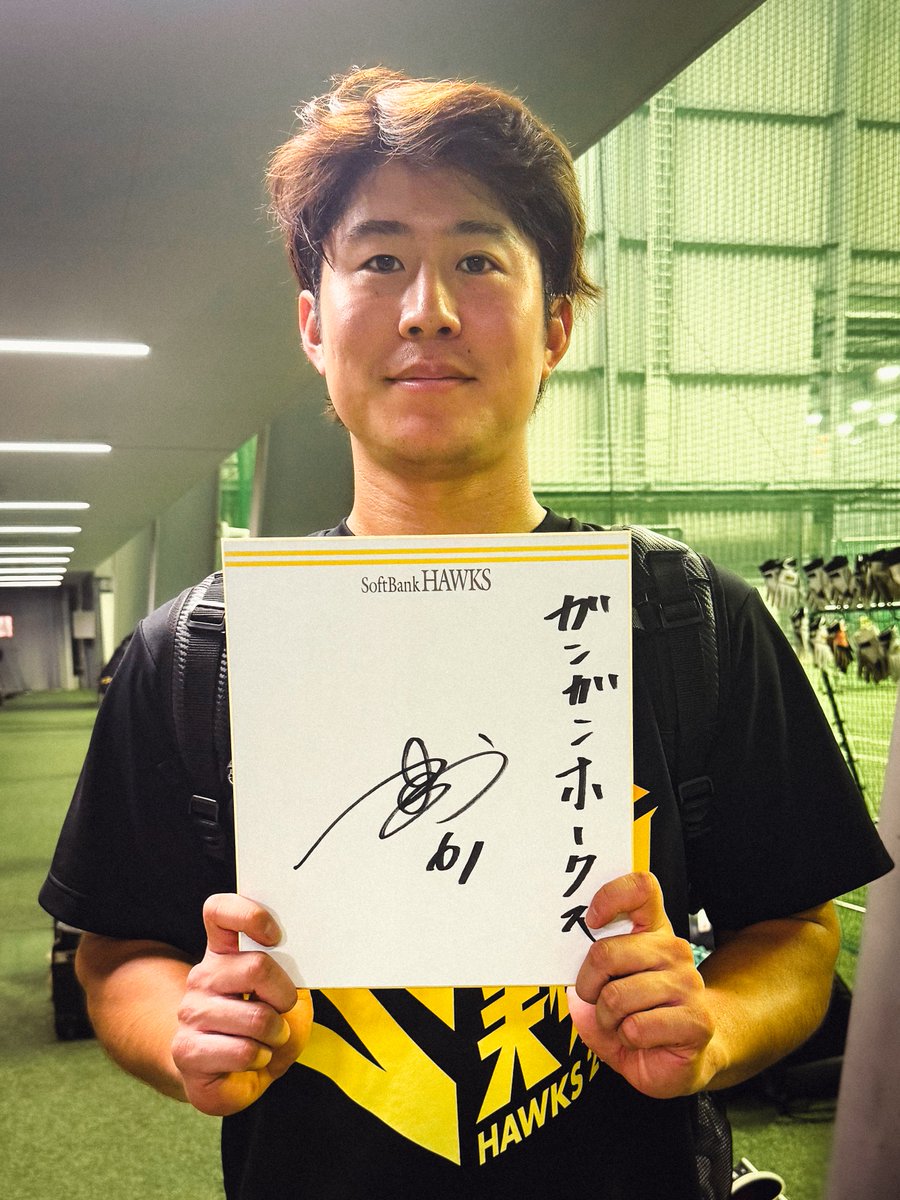 SoftBank HAWKS
ガンガンホークス
61
HAWKS 2